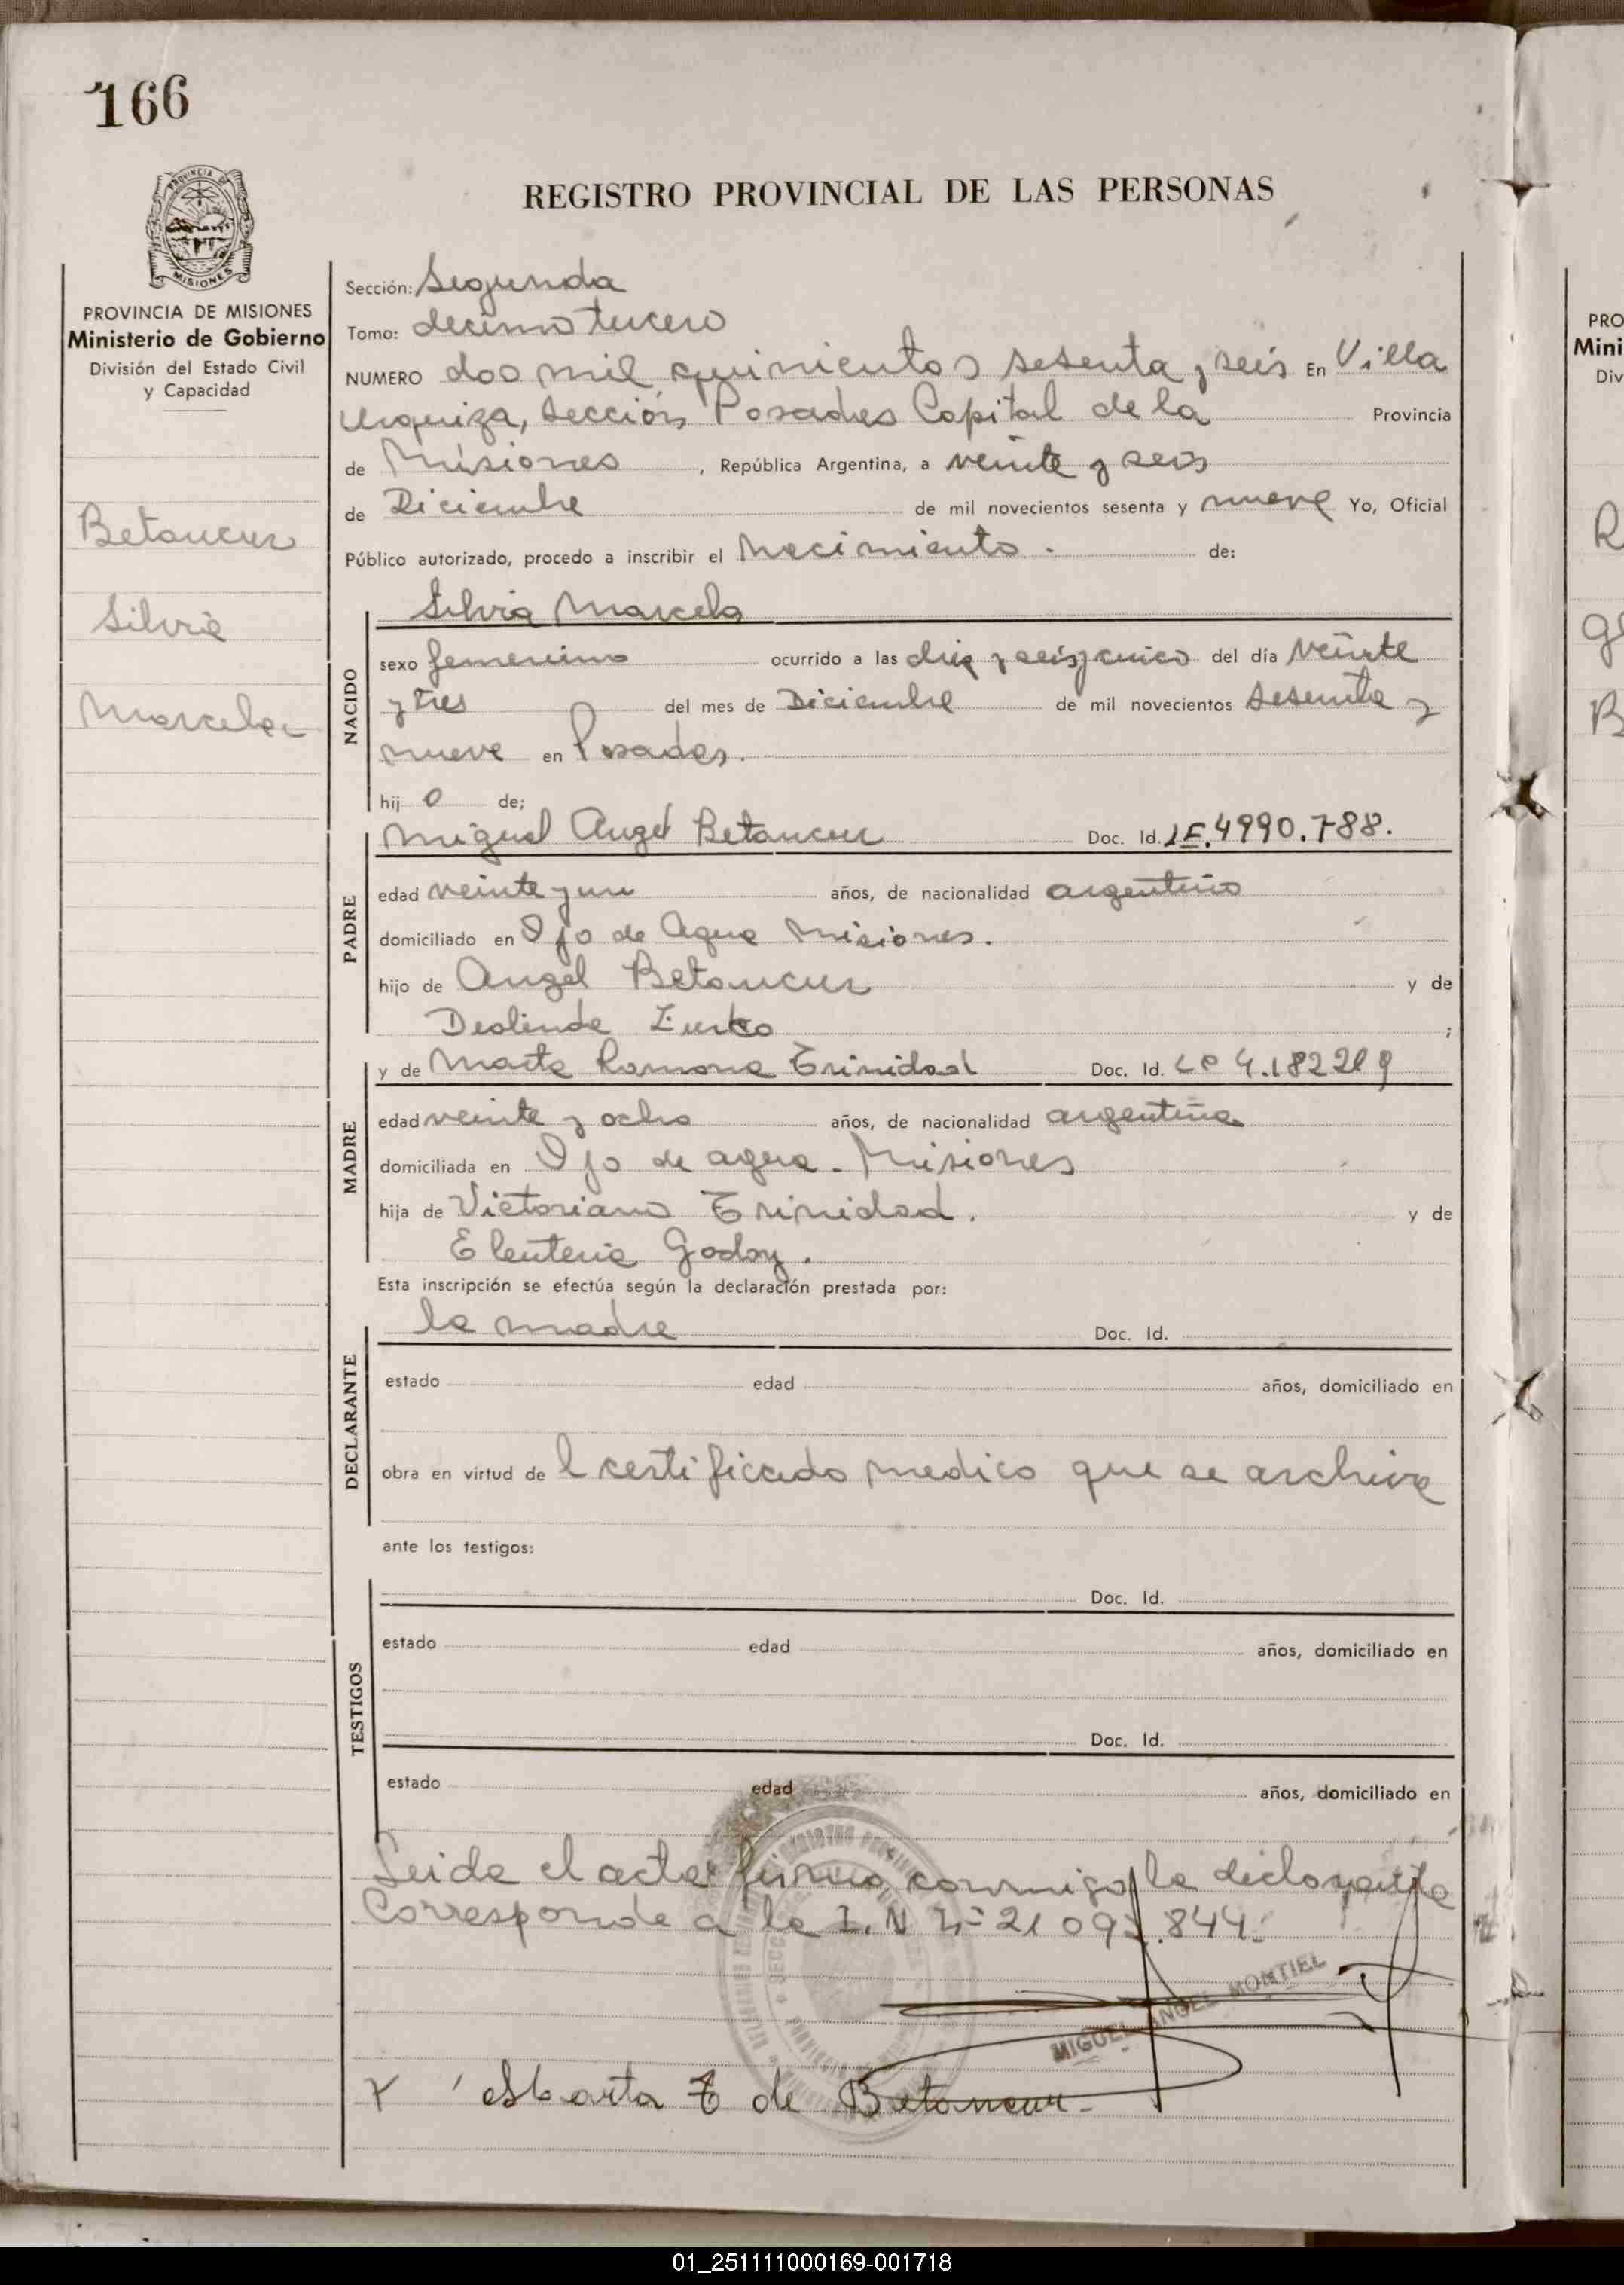 166
PROVINCIA DE
MISIONES
REGISTRO PROVINCIAL DE LAS PERSONAS
PROVINCIA DE MISIONES
Ministerio de Gobierno
División del Estado Civil
y Capacidad
Betancur
Silvia
Marcela
Sección: Segunda
Tomo: decimo tercero
NUMERO dos mil quinientos sesenta y seis En Villa
Urquiza, Sección Posadas Capital de la Provincia
de Misiones, República Argentina, a veinte y seis
de Diciembre de mil novecientos sesenta y nueve Yo, Oficial
Público autorizado, procedo a inscribir el Nacimiento. de:
NACIDO
Silvia Marcela
sexo femenino ocurrido a las diez y seis y cinco del día veinte
y tres del mes de Diciembre de mil novecientos sesenta y
nueve en Posadas.
hij o de;
PADRE
Miguel Angel Betancur Doc. Id. LE. 4990.788.
edad veinte y un años, de nacionalidad argentino
domiciliado en Ojo de Agua Misiones.
hijo de Angel Betancur y de
Deolinda ;
MADRE
y de Marta Ramona Trinidad Doc. Id. LC 4.182219
edad veinte y ocho años, de nacionalidad argentina
domiciliada en Ojo de agua - Misiones
hija de Victoriano Trinidad. y de
Eleuteria Godoy.
Esta inscripción se efectúa según la declaración prestada por:
DECLARANTE
la madre Doc. Id.
estado edad años, domiciliado en
obra en virtud de l certificado medico que se archiva
ante los testigos:
TESTIGOS
Doc. Id.
estado edad años, domiciliado en
Doc. Id.
estado edad años, domiciliado en
Leida el acta firma conmigo la declarante
Corresponde a la I.N Nº 21 .844.
MIGUEL ANGEL MONTIEL
Marta T de Betancur
PRO
Mini
Div
01_251111000169-001718